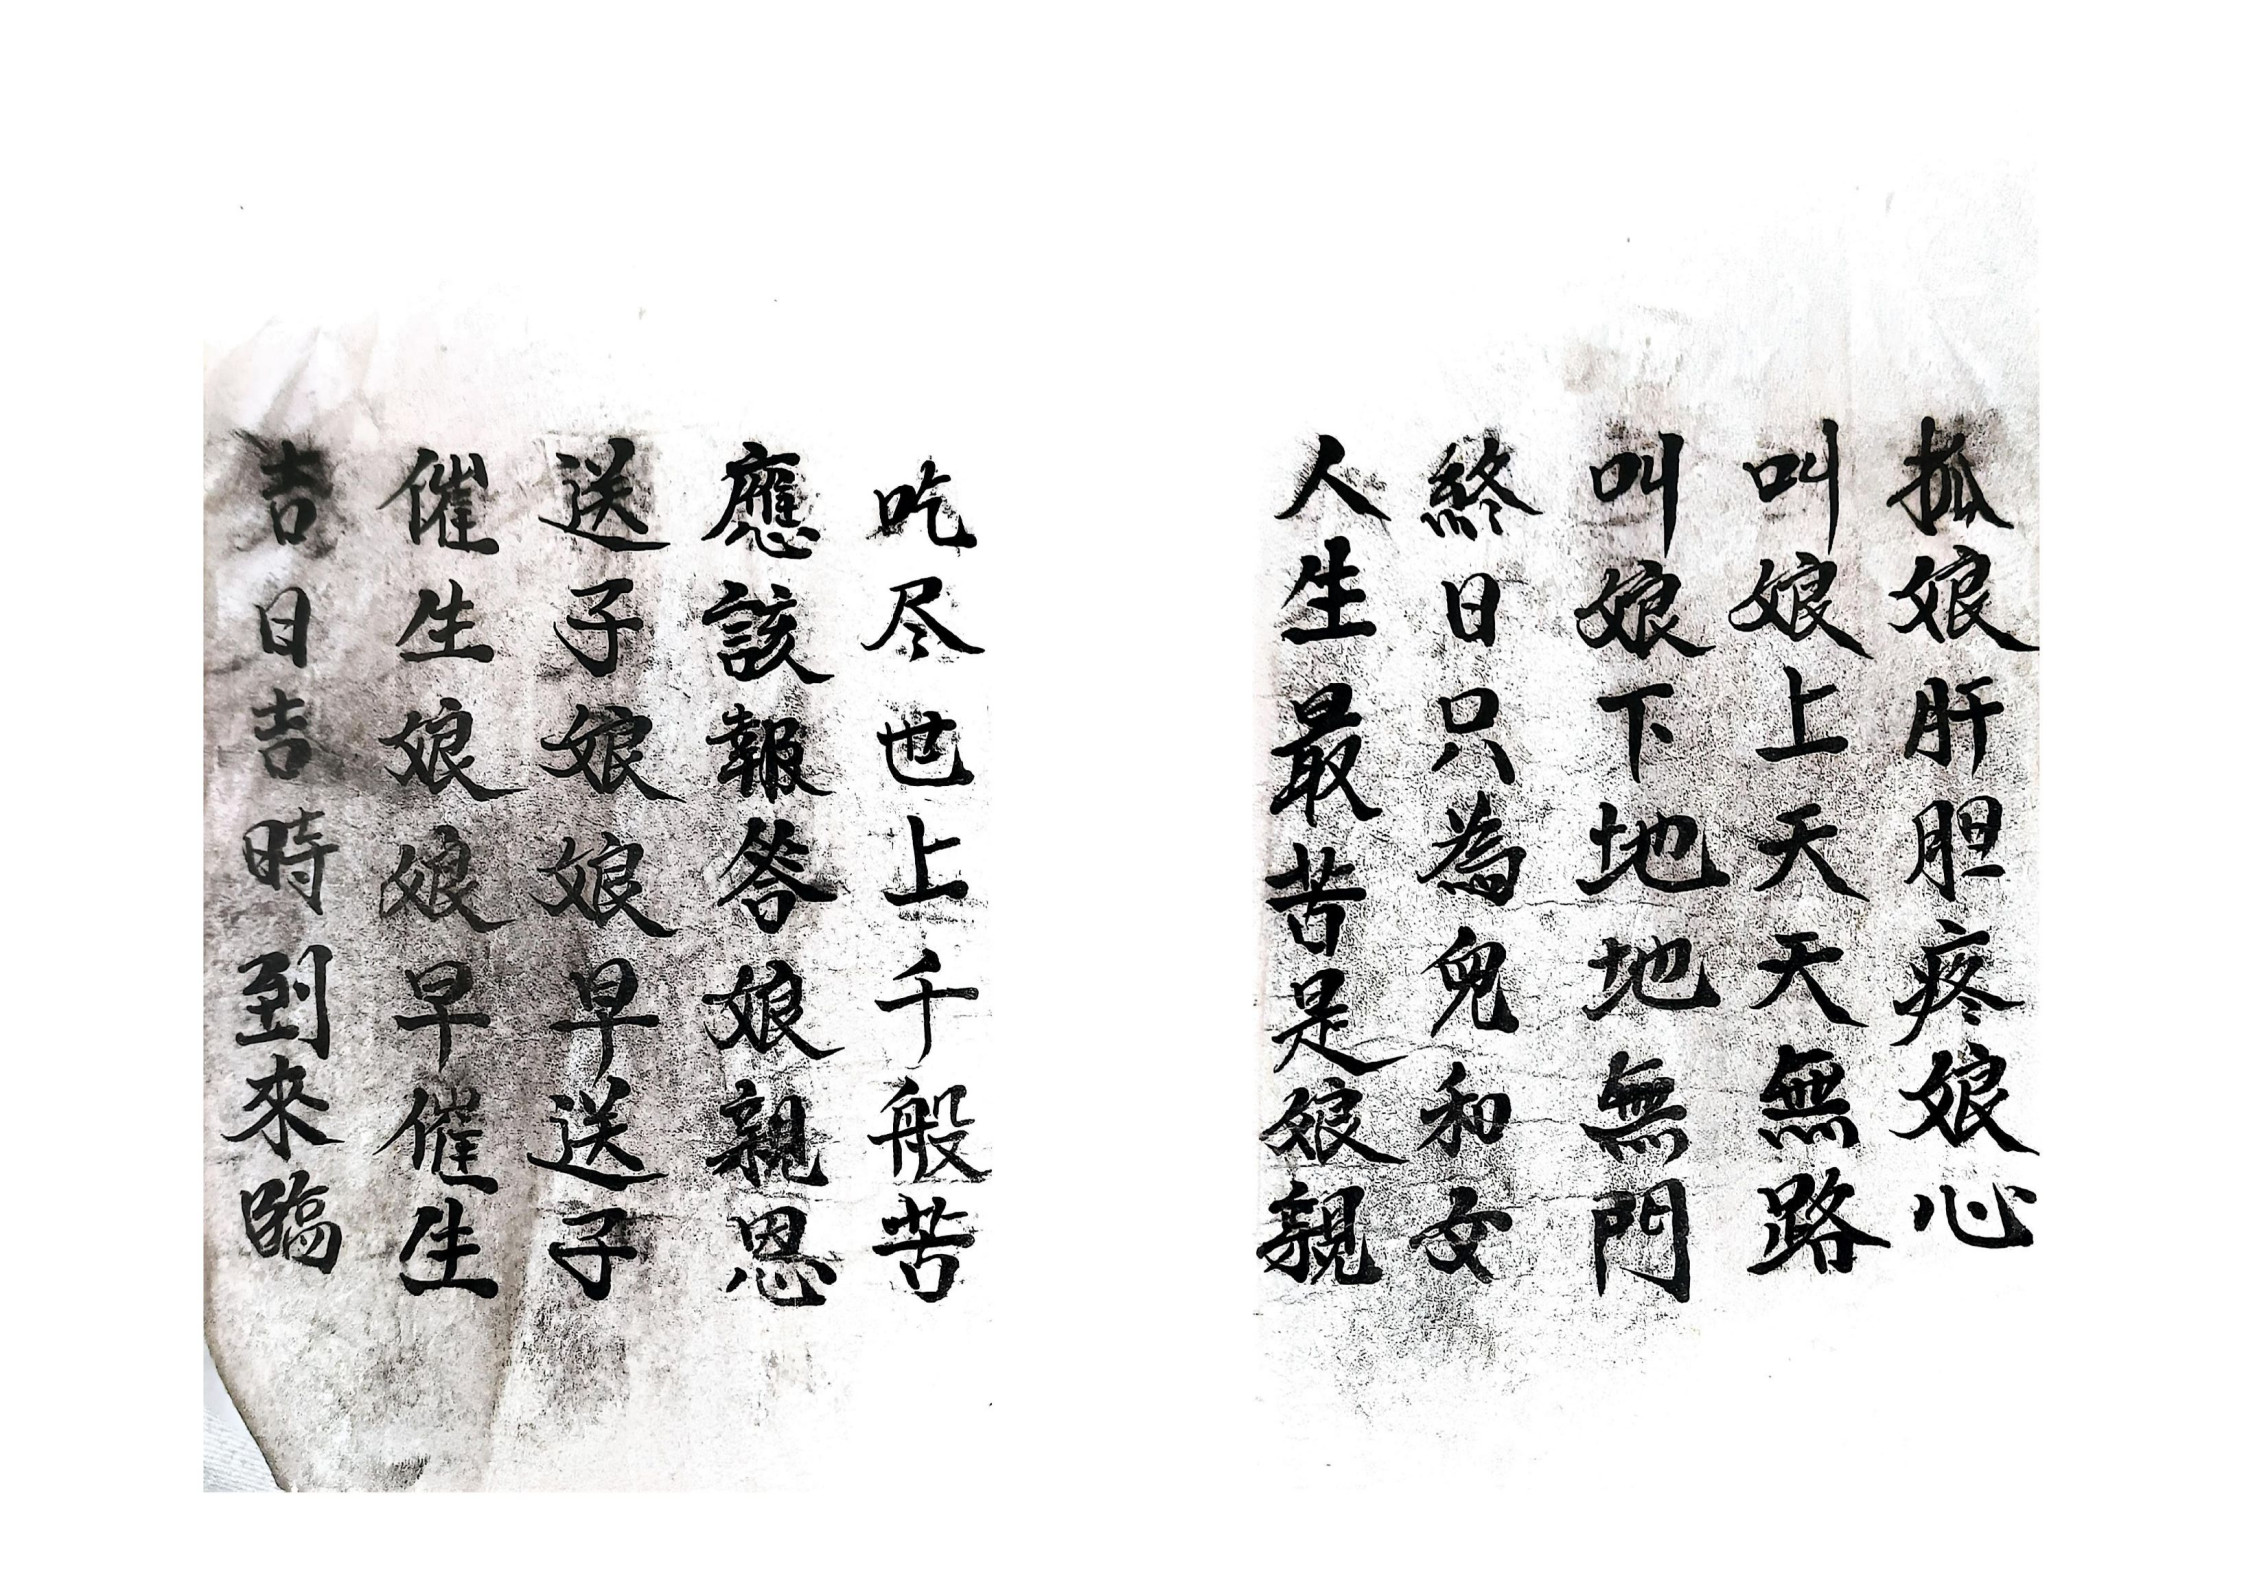 抓娘肝胆疼娘心
叫娘上天天無路
叫娘下地地無門
終日只為兒和女
人生最苦是娘親
吃尽世上千般苦
應該報答娘親恩
送子娘娘早送子
催生娘娘早催生
吉日吉時到來臨